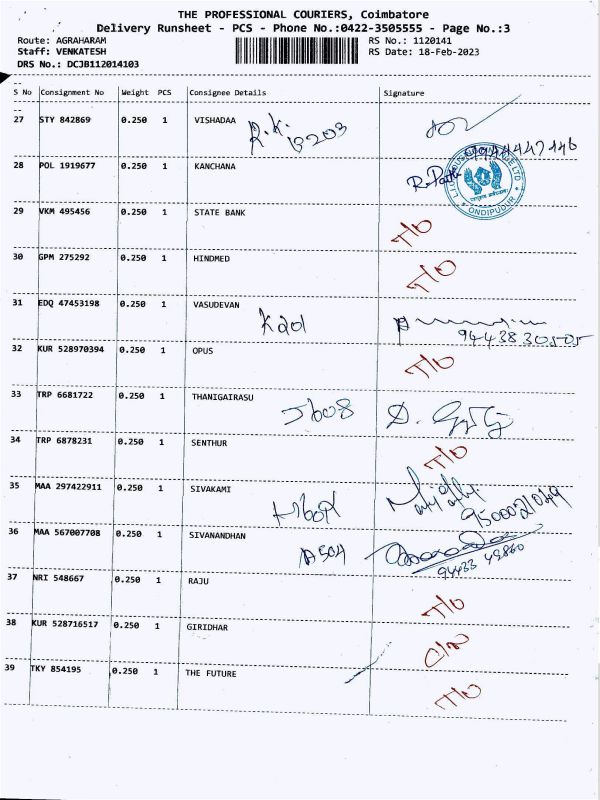 THE PROFESSIONAL COURIERS, Coimbatore
Delivery Runsheet - PCS - Phone No.:0422-3505555 - Page No.:3
Route: AGRAHARAM RS No.: 1120141
Staff: VENKATESH RS Date: 18-Feb-2023
DRS No.: DCJB112014103
S No Consignment No Weight PCS Consignee Details Signature
27 STY 842869 0.250 1 VISHADAA R.K. B203
28 POL 1919677 0.250 1 KANCHANA
ONDIPUDUR
29 VKM 495456 0.250 1 STATE BANK T/O
30 GPM 275292 0.250 1 HINDMED T/O
31 EDQ 47453198 0.250 1 VASUDEVAN K201
9443830505
32 KUR 528970394 0.250 1 OPUS T/O
33 TRP 6681722 0.250 1 THANIGAIRASU J608
34 TRP 6878231 0.250 1 SENTHUR T/O
35 MAA 297422911 0.250 1 SIVAKAMI
36 MAA 567007708 0.250 1 SIVANANDHAN A504
94433 49860
37 NRI 548667 0.250 1 RAJU T/O
38 KUR 528716517 0.250 1 GIRIDHAR
39 TKY 854195 0.250 1 THE FUTURE T/O